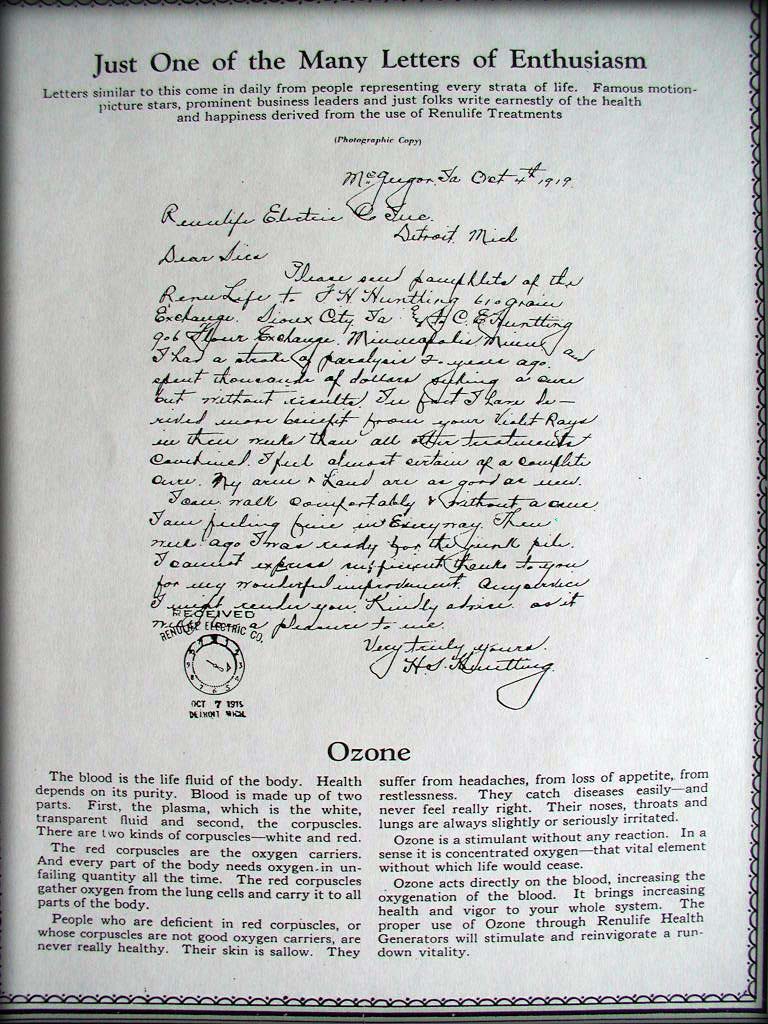 Just One of the Many Letters of Enthusiasm
Letters similar to this come in daily from people representing every strata of life. Famous motion-
picture stars, prominent business leaders and just folks write earnestly of the health
and happiness derived from the use of Renulife Treatments
(Photographic Copy)
McGregor, Ia Oct 4th 1919.
Renulife Electric Co Inc.
Detroit, Mich
Dear Sirs
Please send pamphlets of the
RenuLife to F. H. Huntting 610 Grain
Exchange. Sioux City Ia & to C. E. Huntting
906 Flour Exchange. Minneapolis Minn
I had a stroke of paralysis 2 years ago. and
spent thousands of dollars seeking a cure
but without results. In fact I have de-
rived more benefit from your Violet Rays
in three weeks than all other treatments
combined. I feel almost certain of a complete
cure. My arm & hand are as good as new.
I can walk comfortably & without a cane.
I am feeling fine in every way. Three
weeks ago I was ready for the junk pile.
I cannot express sufficient thanks to you
for my wonderful improvement. Any service
I might render you, Kindly advise as it
will be a pleasure to me.
Very truly yours.
H. S. Huntting.
RECEIVED
RENULIFE ELECTRIC CO.
OCT 7 1919
DETROIT MICH.
Ozone
The blood is the life fluid of the body. Health
depends on its purity. Blood is made up of two
parts. First, the plasma, which is the white,
transparent fluid and second, the corpuscles.
There are two kinds of corpuscles—white and red.
The red corpuscles are the oxygen carriers.
And every part of the body needs oxygen in un-
failing quantity all the time. The red corpuscles
gather oxygen from the lung cells and carry it to all
parts of the body.
People who are deficient in red corpuscles, or
whose corpuscles are not good oxygen carriers, are
never really healthy. Their skin is sallow. They
suffer from headaches, from loss of appetite, from
restlessness. They catch diseases easily—and
never feel really right. Their noses, throats and
lungs are always slightly or seriously irritated.
Ozone is a stimulant without any reaction. In a
sense it is concentrated oxygen—that vital element
without which life would cease.
Ozone acts directly on the blood, increasing the
oxygenation of the blood. It brings increasing
health and vigor to your whole system. The
proper use of Ozone through Renulife Health
Generators will stimulate and reinvigorate a run-
down vitality.